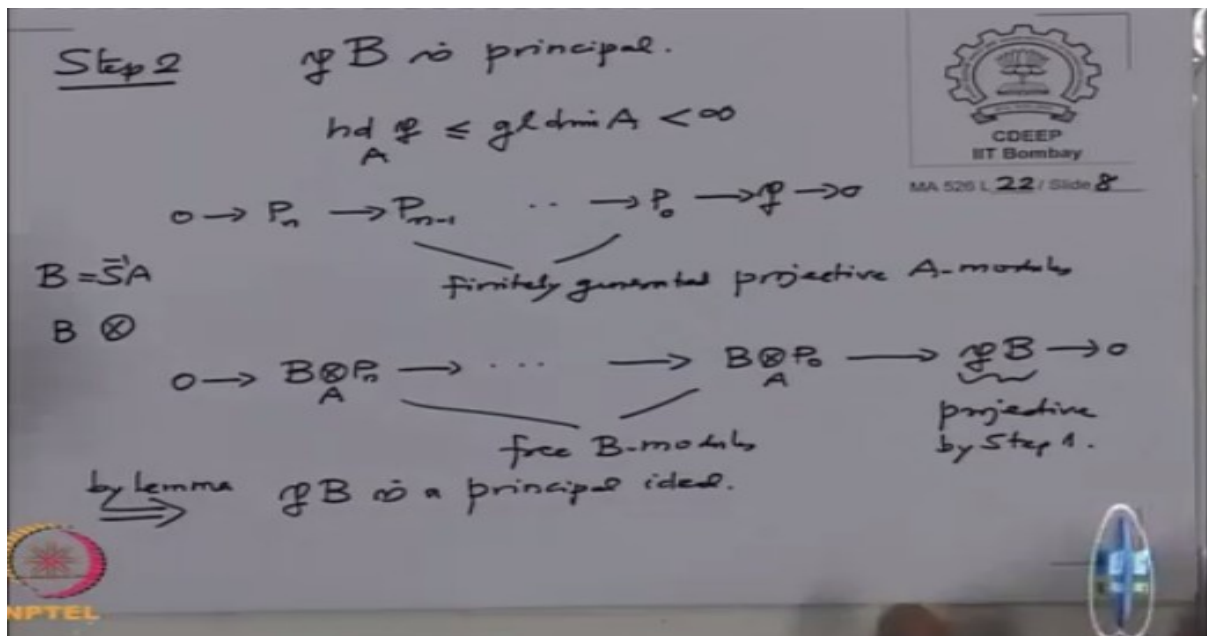 Step 2 𝔭B is principal.
hd_A 𝔭 ≤ gl dim A < ∞
CDEEP
IIT Bombay
MA 526 L 22 / Slide 8
0 → P_n → P_{n-1} ·· → P_0 → 𝔭 → 0
finitely generated projective A-modules
B = S⁻¹A
B ⊗
0 → B ⊗_A P_n → ··· → B ⊗_A P_0 → 𝔭B → 0
free B-modules
projective
by Step 1.
by Lemma ⟹ 𝔭B is a principal ideal.
NPTEL